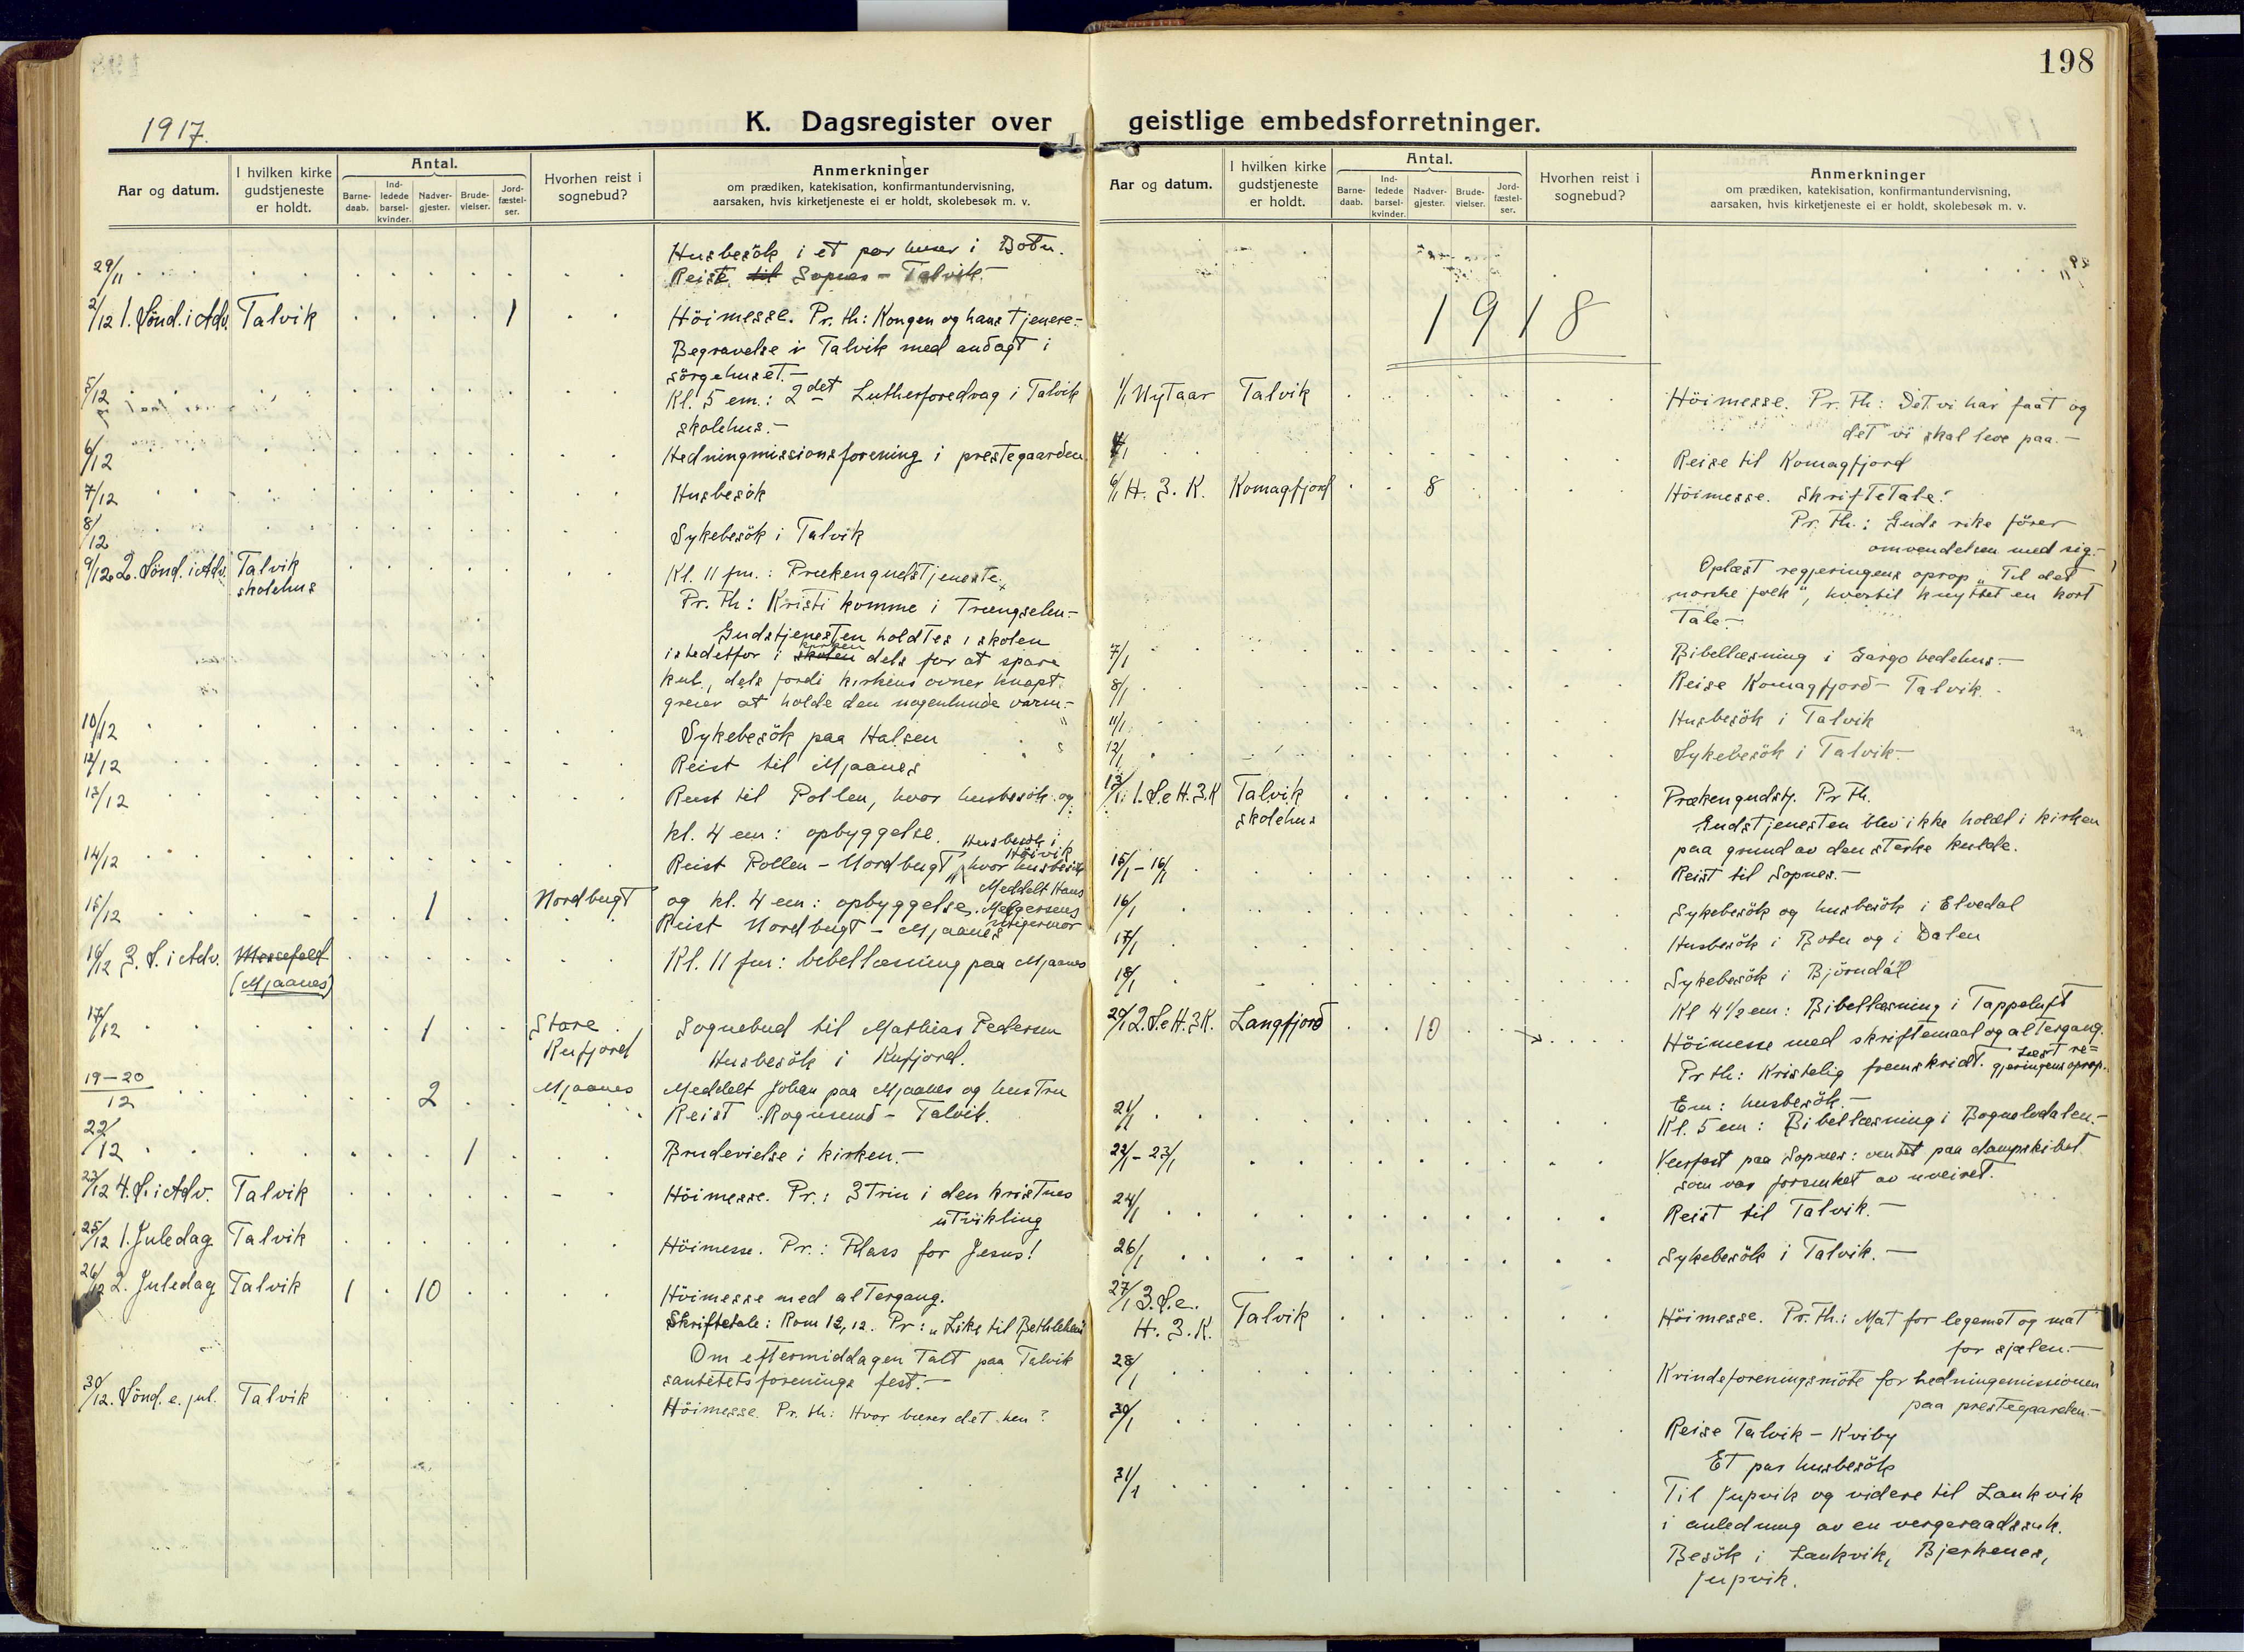 198
1917.
K. Dagsregister over geistlige embedsforretninger.
Aar og datum.
I hvilken kirke gudstjeneste er holdt.
Antal.
Barne-daab.
Ind-ledede barsel-kvinder.
Nadver-gjester.
Brude-vielser.
Jord-fæstel-ser.
Hvorhen reist i sognebud?
Anmerkninger
om prædiken, katekisation, konfirmantundervisning,
aarsaken, hvis kirketjeneste ei er holdt, skolebesøk m. v.
29/11 Husbesök i et par huser i Botn.
Reist til Sopnes - Talvik.-
2/12 1. Sönd. i Adv. Talvik 1 Höimesse. Pr. th: Kongen og hans tjenere.-
Begravelse i Talvik med andagt i
sörgehuset.-
5/12 Kl. 5 em.: 2det Lutherforedrag i Talvik
skolehus.-
6/12 Hedningmissionsforening i prestegaarden.
7/12 Husbesök
8/12 Sykebesök i Talvik
9/12 2. Sönd. i Adv. Talvik skolehus Kl. 11 fm.: Prækengudstjeneste.
Pr. Th: Kristi komme i Trængselen.-
Gudstjenesten holdtes i skolen
istedetfor i skolen kirken dels for at spare
kul, dels fordi kirkens ovner knapt
greier at holde den nogenlunde varm.-
10/12 Sykebesök paa Halsen
12/12 Reist til Mjaanes
13/12 Reist til Pollen, hvor husbesök og
kl. 4 em: opbyggelse.
14/12 Reist Pollen - Nordbugt, hvor husbesök
Husbesök i Höivik
og kl. 4 em: opbyggelse. Meddelt Hans
15/12 1 Nordbugt Reist Nordbugt - Mjaanes
16/12 3. S. i Adv. Messefald (Mjaanes) Kl. 11 fm: bibellæsning paa Mjaanes
17/12 1 Store Kufjord Sognebud til Mathias Pedersen
Husbesök i Kufjord.
19-20/12 2 Mjaanes Meddelt Johan paa Mjaanes og hustru
Reist Rognsund - Talvik.
22/12 1 Brudevielse i kirken.-
23/12 4. S. i Adv. Talvik Höimesse. Pr.: 3 Trin i den kristnes
utvikling
25/12 1. Juledag Talvik Höimesse. Pr.: Plass for Jesus!
26/12 2. Juledag Talvik 1 10 Höimesse med altergang.
Skriftetale: Rom 12,12. Pr: "Like til Bethlehem
Om eftermiddagen Talt paa Talvik
sanitetsforenings fest.-
30/12. Sönd. e. jul. Talvik Höimesse. Pr. th: Hvor bærer det hen?
Aar og datum.
I hvilken kirke gudstjeneste er holdt.
Antal.
Barne-daab.
Ind-ledede barsel-kvinder.
Nadver-gjester.
Brude-vielser.
Jord-fæstel-ser.
Hvorhen reist i sognebud?
Anmerkninger
om prædiken, katekisation, konfirmantundervisning,
aarsaken, hvis kirketjeneste ei er holdt, skolebesøk m. v.
1918
1/1 Nytaar Talvik Höimesse. Pr. Th: Det vi har faat og
det vi skal leve paa.-
4/1 Reise til Komagfjord
6/1 H. 3. K. Komagfjord 8 Höimesse. Skriftetale:
Pr. Th.: Guds rike förer
omvendelsen med sig.-
Oplæst regjeringens oprop "Til det
norske folk", hvortil knyttet en kort
Tale.-
7/1 Bibellæsning i Gargo bedehus.-
8/1 Reise Komagfjord - Talvik.
11/1 Husbesök i Talvik
12/1 Sykebesök i Talvik.-
13/1 1. S. e H. 3. K Talvik skolehus Prækengudstj. Pr Th.
Gudstjenesten blev ikke holdt i kirken
paa grund av den sterke kulde.
15/1 - 16/1 Reist til Sopnes.-
16/1 Sykebesök og husbesök i Elvedal
17/1 Husbesök i Botn og i Dalen
18/1 Sykebesök i Björndal
Kl 4 1/2 em: Bibellæsning i Tappeluft
20/1 2. S. e H. 3 K. Langfjord 10 Höimesse med skriftemaal og altergang.
Pr th: Kristelig fremskridt. Læst re=
gjeringens oprop.
Em: husbesök.-
21/1 Kl. 5 em: Bibellæsning i Bognelvdalen.-
22/1 - 23/1 Veirfast paa Sopnes: ventet paa dampskibet
som var forsinket av uveiret.
24/1 Reist til Talvik.-
26/1 Sykebesök i Talvik.-
27/1 3. S. e. H. 3. K. Talvik Höimesse. Pr. Th.: Mat for legemet og mat
for sjælen.-
28/1 Kvindeforeningsmöte for hedningemissionen
paa prestegaarden.-
30/1 Reise Talvik - Kviby
Et par husbesök
31/1 Til Jupvik og videre til Lankvik
i anledning av en vergeraadssak.
Besök i Lankvik, Bjerkenes,
Jupvik.